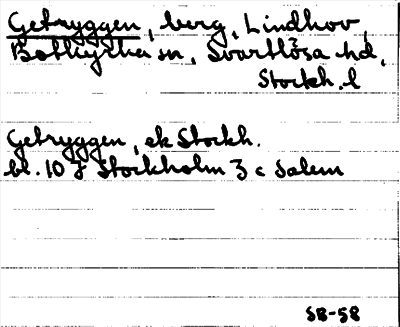 Getryggen, berg, Lindhov,
Botkyrka sn, Svartlösa hd,
Stockh. l
Getryggen, ek Stockh.
bl. 10 I Stockholm 3 c Salem
SB-58